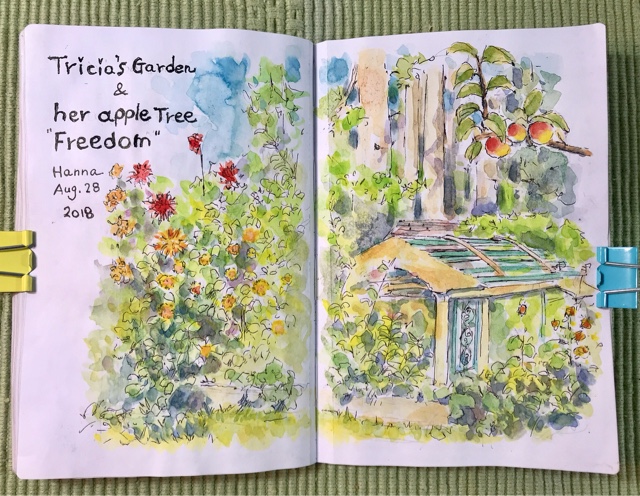 Tricia's Garden
&
her apple Tree
"Freedom"
Hanna
Aug. 28
2018